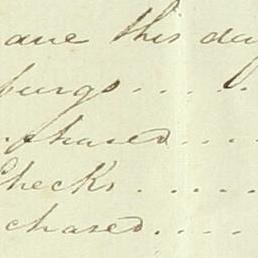 ane this day
purgs . . . . .
rchased . . . .
Checks . . . . .
chased . . . . .